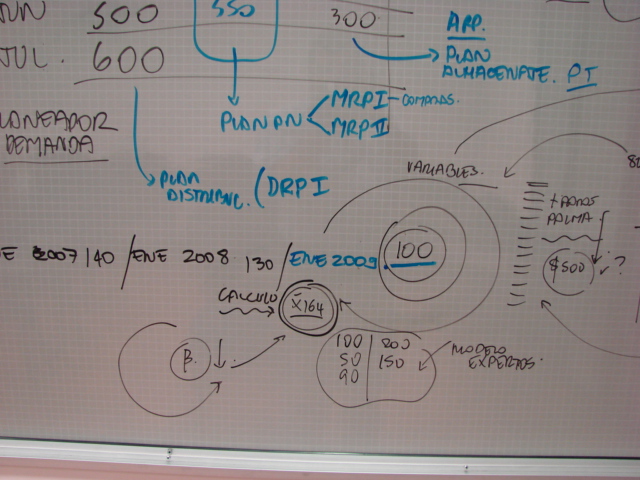 JUN 500 550 300 APP.
JUL. 600 PLAN
ALMACENATE. PI
MRP I - COMANDAS.
PLAN PN
MRP II
PLANEADOR
DEMANDA
VARIABLES.
PLAN
DISTRIBUC. (DRP I
$500 ?
E 2007 140 / ENE 2008 130 / ENE 2009. 100
CALCULO X 164
β.
100 200
50 150
90
MODELO
EXPERTOS.